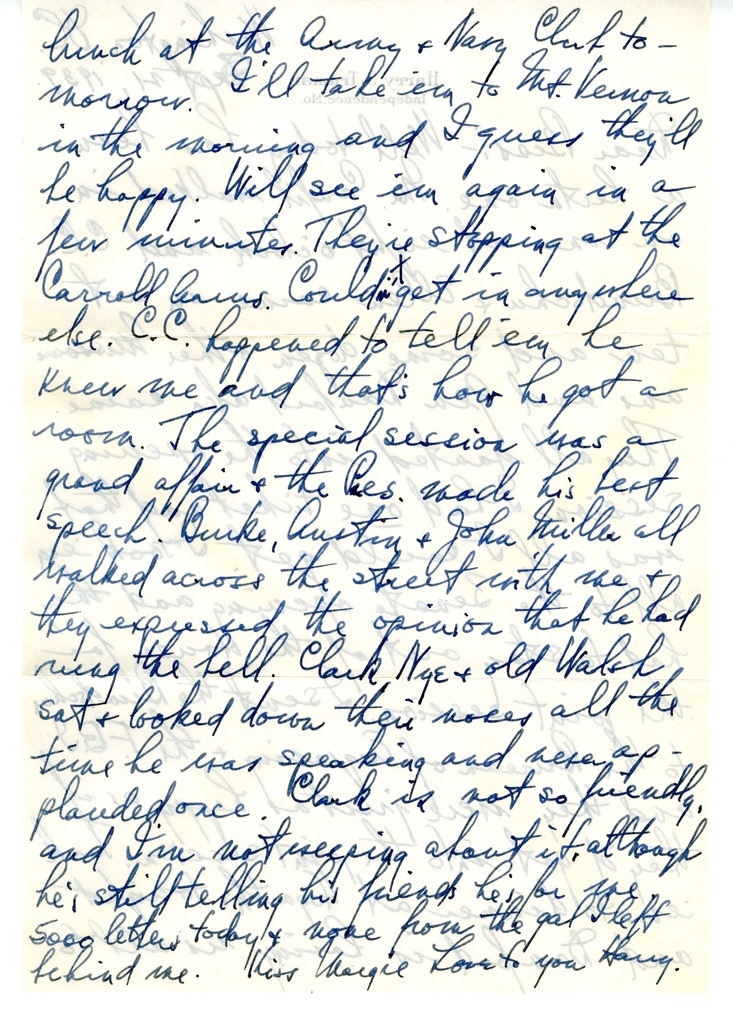 lunch at the Army & Navy Club to-
morrow. I'll take em to Mt. Vernon
in the morning and I guess they'll
be happy. Will see em again in a
few minutes. They're stopping at the
Carroll Arms. Couldn't get in anywhere
else. C.C. happened to tell em he
knew me and that's how he got a
room. The special session was a
grand affair & the Pres. made his best
speech. Burke, Austin & John Miller all
walked across the street with me &
they expressed the opinion that he had
rung the bell. Clark, Nye & old Walsh
sat & looked down their noses all the
time he was speaking and never ap-
plauded once. Clark is not so friendly,
and I'm not weeping about it, although
he's still telling his friends he's for me.
5000 letters today & none from the gal I left
behind me. Kiss Margie Love to you Harry.